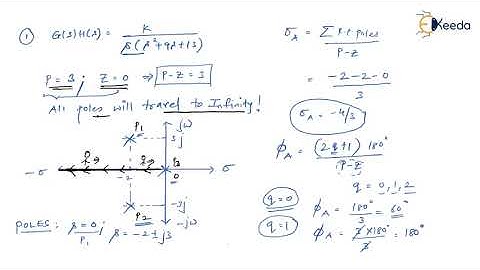 Ekeeda
① G(s)H(s) = K / s(s²+4s+13)
P=3 ; Z=0 ⇒ P-Z=3
All poles will travel to Infinity!
P₁
jω
3j
-σ
-2
0
σ
P₂
-3j
-jω
POLES: s=0 ; s=-2±j3
P₁
σ_A = Σ R.P. of poles / P-Z
= -2-2-0 / 3
σ_A = -4/3
ϕ_A = (2q+1) 180° / P-Z
q = 0, 1, 2
q=0 ϕ_A = 180°/3 = 60°
q=1 ϕ_A = 3×180°/3 = 180°